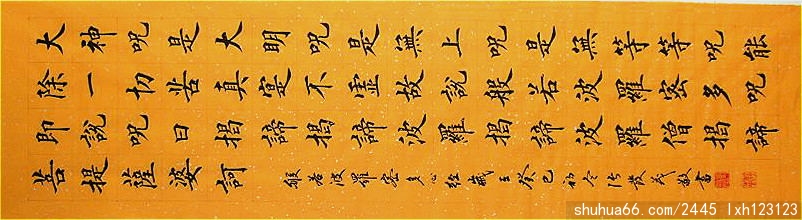 大神呪是大明呪是無上呪是無等等呪能
除一切苦真寔不虛故說般若波羅密多呪
即說呪曰揭諦揭諦波羅揭諦波羅僧揭諦
菩提薩婆訶
般若波羅密多心經歲癸巳初冬敬書
shuhua66.com/2445 lxh123123